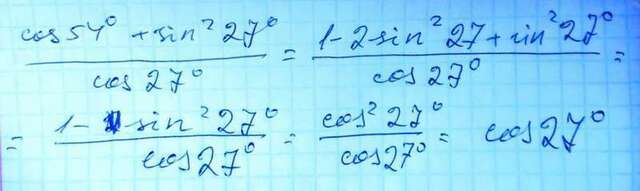 (cos 54° + sin² 27°) / cos 27° = (1 - 2 sin² 27 + sin² 27°) / cos 27° =
= (1 - sin² 27°) / cos 27° = cos² 27° / cos 27° = cos 27°